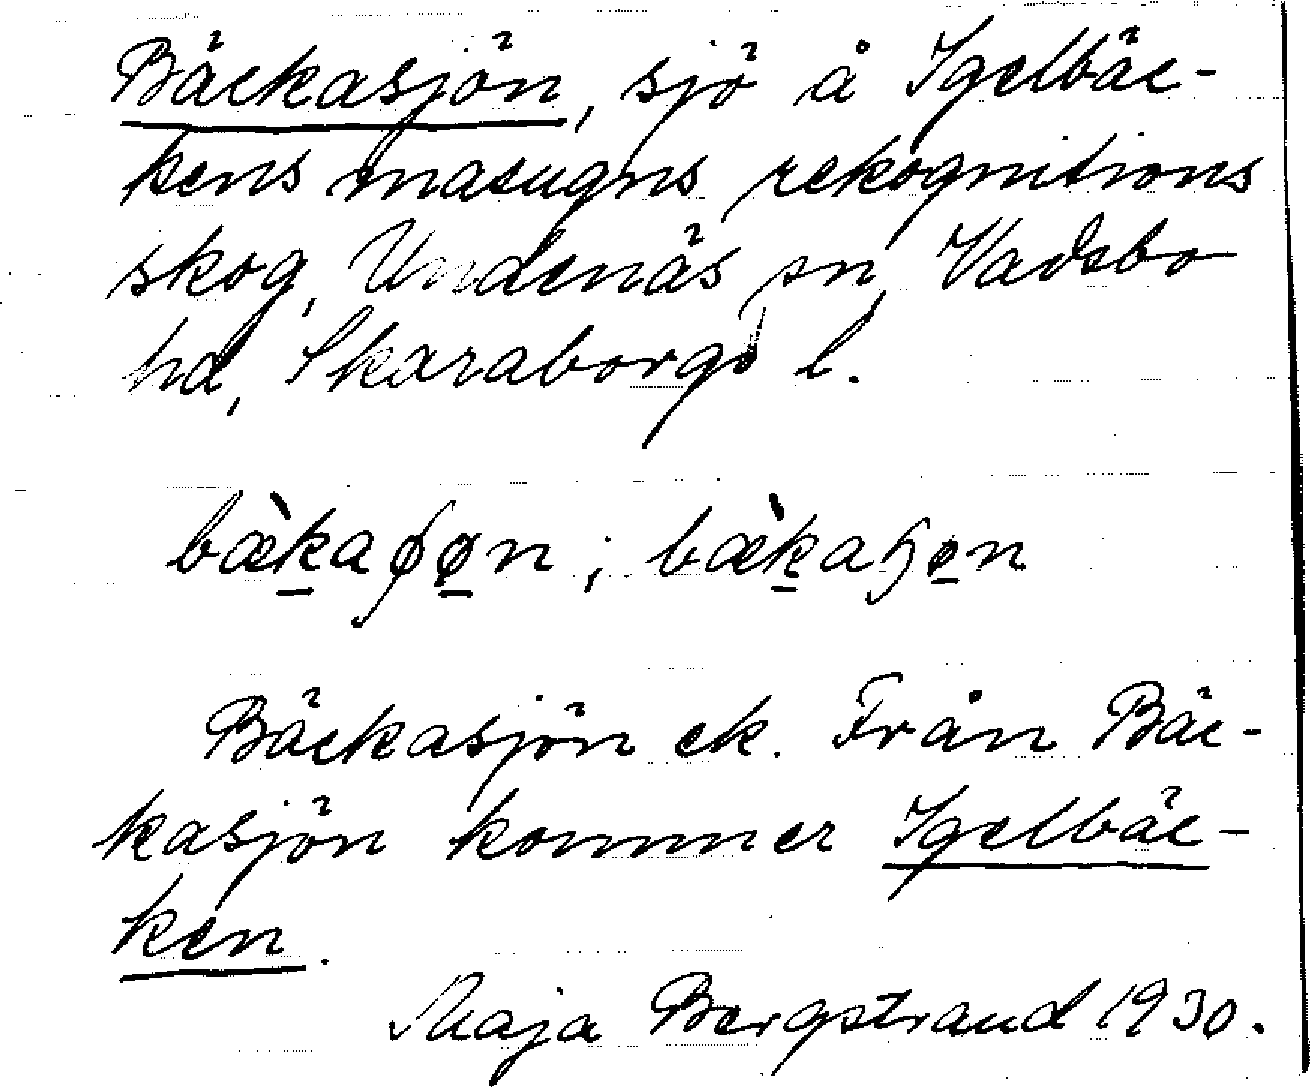 Bäckasjön, sjö å Igelbäc-
kens masugns rekognitions
skog, Undenäs sn, Vadsbo
hd, Skaraborgs l.
bæ̀ka
Bäckasjön ek. Från Bäc-
kasjön kommer Igelbäc-
ken.
Maja Bergstrand 1930.